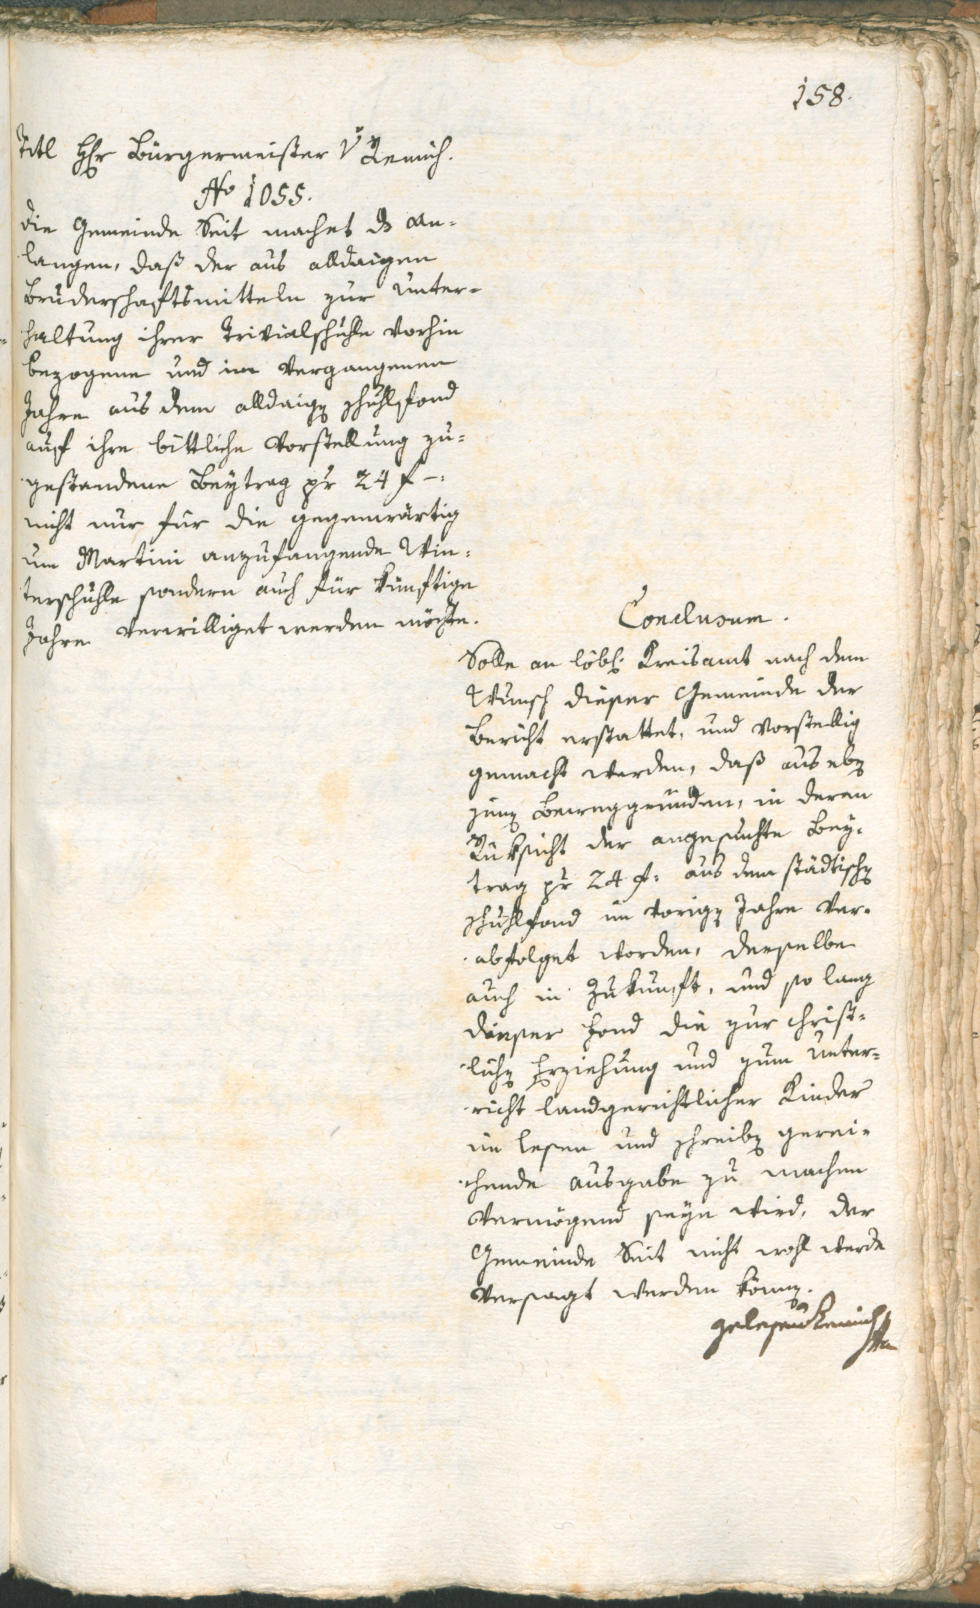 158.
Titl Hr Bürgermeister v Remich.
No 1055.
die Gemeinde Seit machet ds an-
langen, daß der aus alldaigen
Bruderschaftsmitteln zur Unter-
haltung ihrer Trivialschuhle vorhin
bezogene und im vergangenen
Jahre aus dem alldaign Schuhlfond
auf ihre bittliche Vorstellung zu-
gestandene Beytrag pr 24 f -:
nicht nur für die gegenwärtig
um Martini anzufangende Win-
terschuhle sondern auch für künftige
Jahre verwilliget werden möchte.
Conclusum.
Solle an löbl: Kreisamt nach dem
Wunsch dieser Gemeinde der
Bericht erstattet, und vorstellig
gemacht werden, daß aus ebn
jenn Beweggründen, in deren
Rüksicht der angesuchte Bey-
trag pr 24 f: aus dem städtischn
Schuhlfond im vorign Jahre ver-
abfolget worden, derselbe
auch in Zukunft, und so lang
dieser Fond die zur christ-
lichn Erziehung und zum Unter-
richt landgerichtlicher Kinder
im lesen und schreibn gerei-
chende Ausgabe zu machen
vermögend seyn wird, der
Gemeinde Seit nicht wohl werde
versagt werden könnn.
gelesen Remich